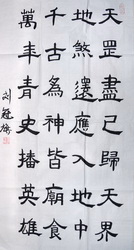 天罡盡已歸天界
地煞還應入地中
千古為神皆廟食
萬年青史播英雄